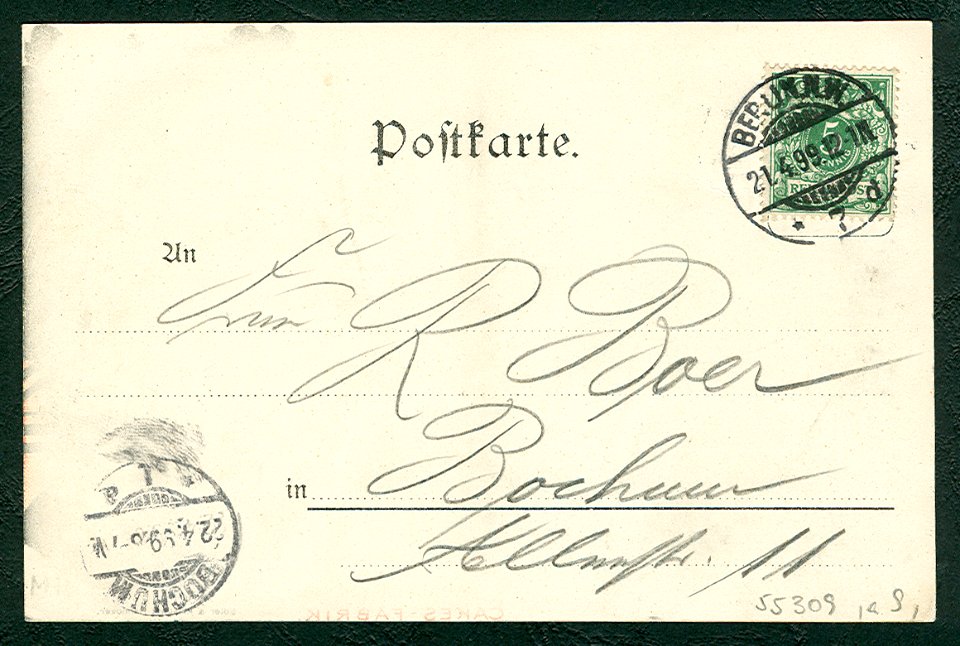 Postkarte.
BERLIN N.W.
21.4.99.12-1N.
* 7 d
5
REICHSPOST
An
R Boer
in Bochum
11
BOCHUM
22.4.99.6-7V.
* 1 a
CAKES-FABRIK
55309